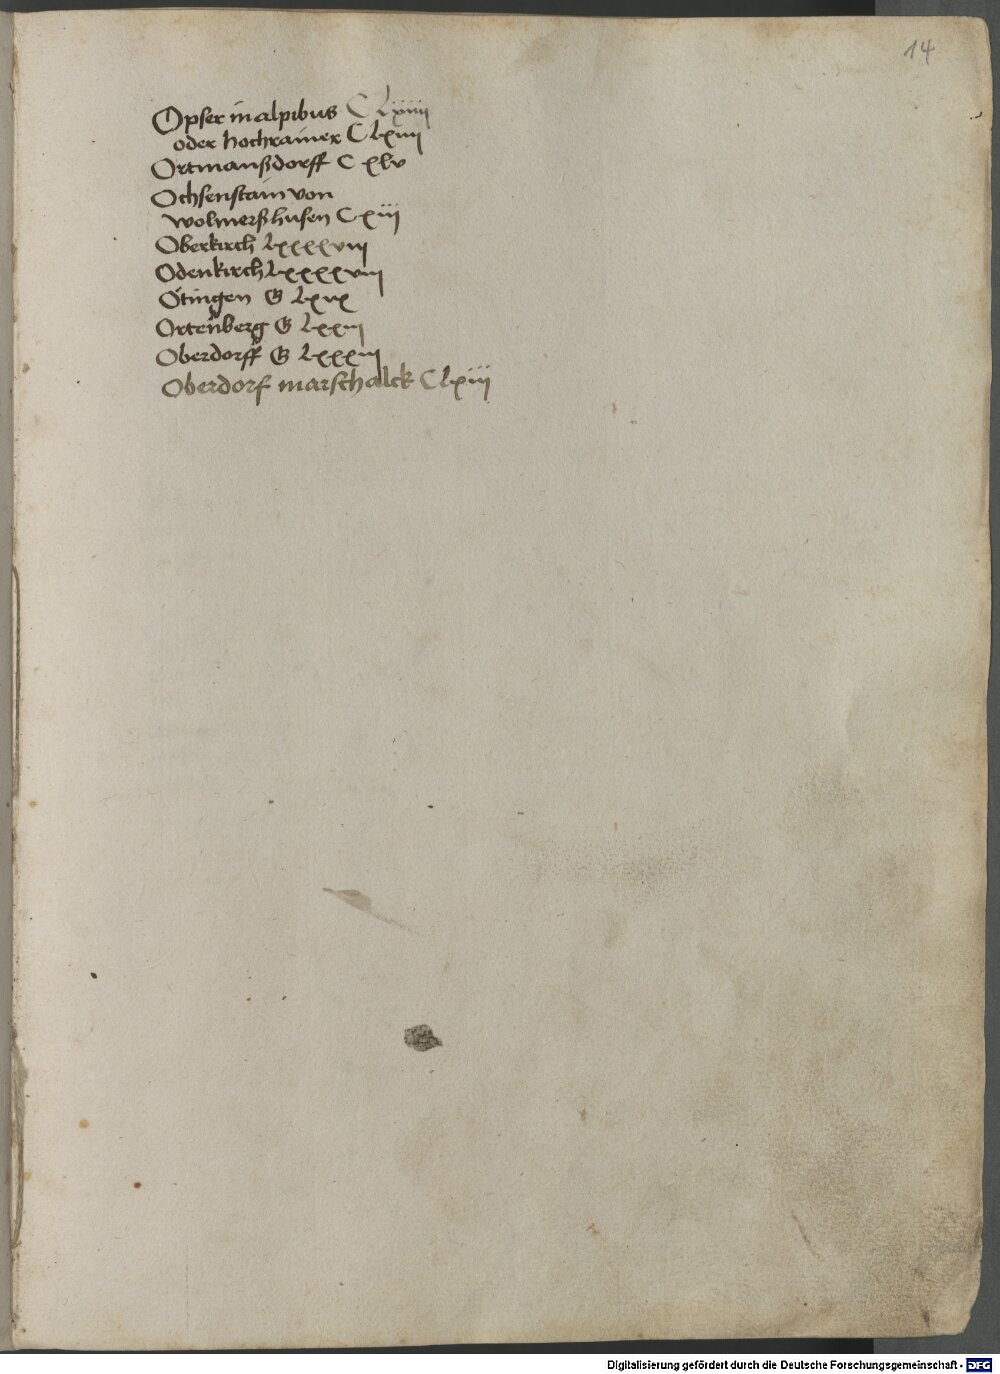 14
Opser in alpibus C lxiiii
oder hochrainer C lxiiii
Ortmanßdorff C xlv
Ochsenstain von
wolmerßhusen C xiii
Oberkirch lxxxxviii
Odenkirch lxxxxviii
Ötingen G
Ortenberg G lxxiii
Oberdorff G lxxxiii
Oberdorf marschalck C lxiii
Digitalisierung gefördert durch die Deutsche Forschungsgemeinschaft - DFG